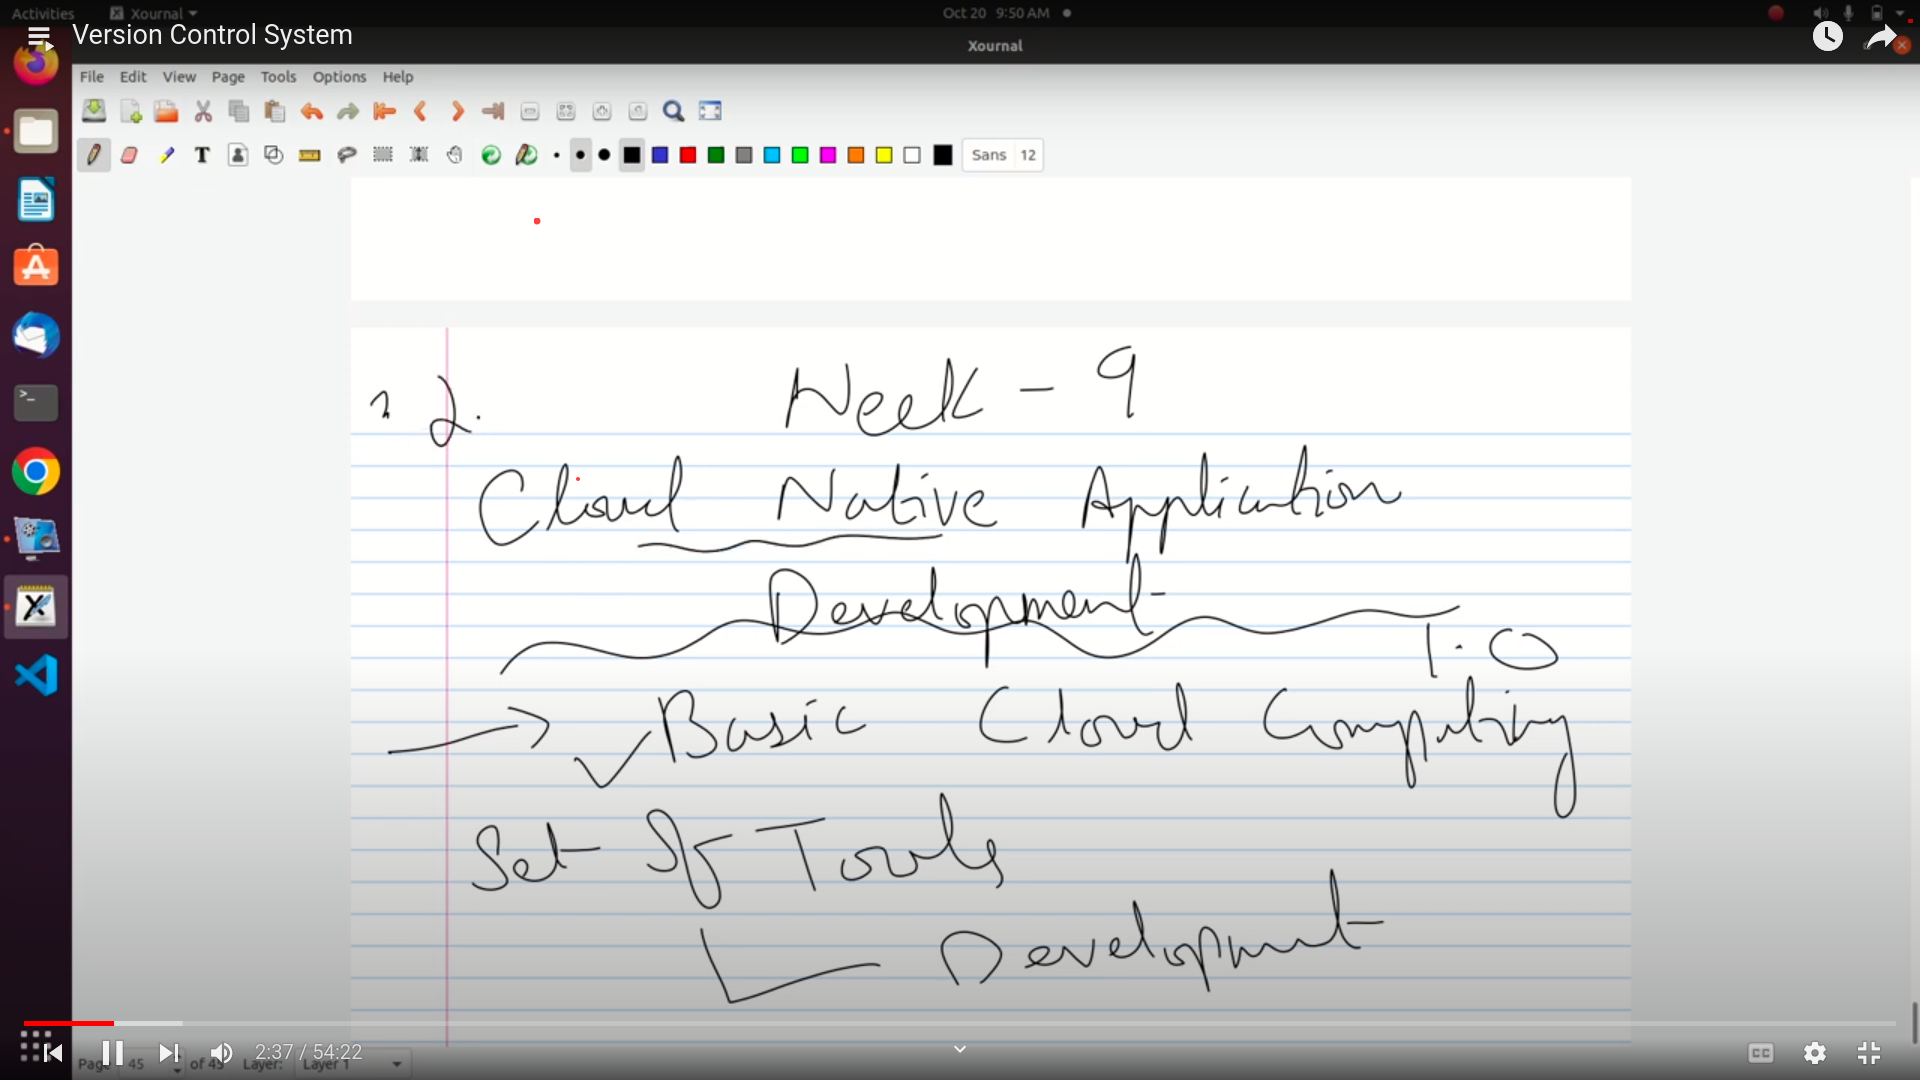 Activities Xournal Oct 20 9:50 AM
Version Control System
Xournal
File Edit View Page Tools Options Help
Sans 12
2. Week - 9
Cloud Native Application
Development
1.0
Basic Cloud Computing
Set of Tools
Development
2:37 / 54:22
CC
Page 45 of 45 Layer: Layer 1